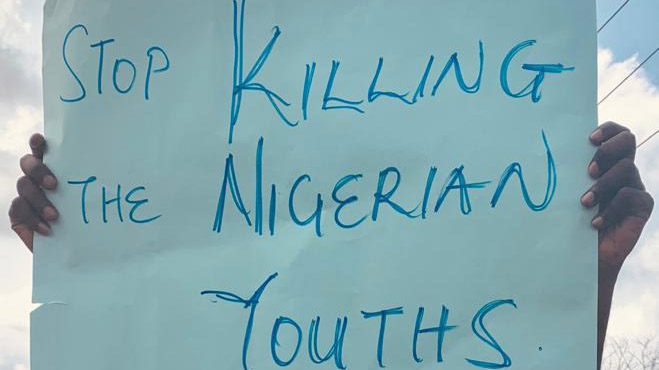 STOP KILLING
THE NIGERIAN
YOUTHS.